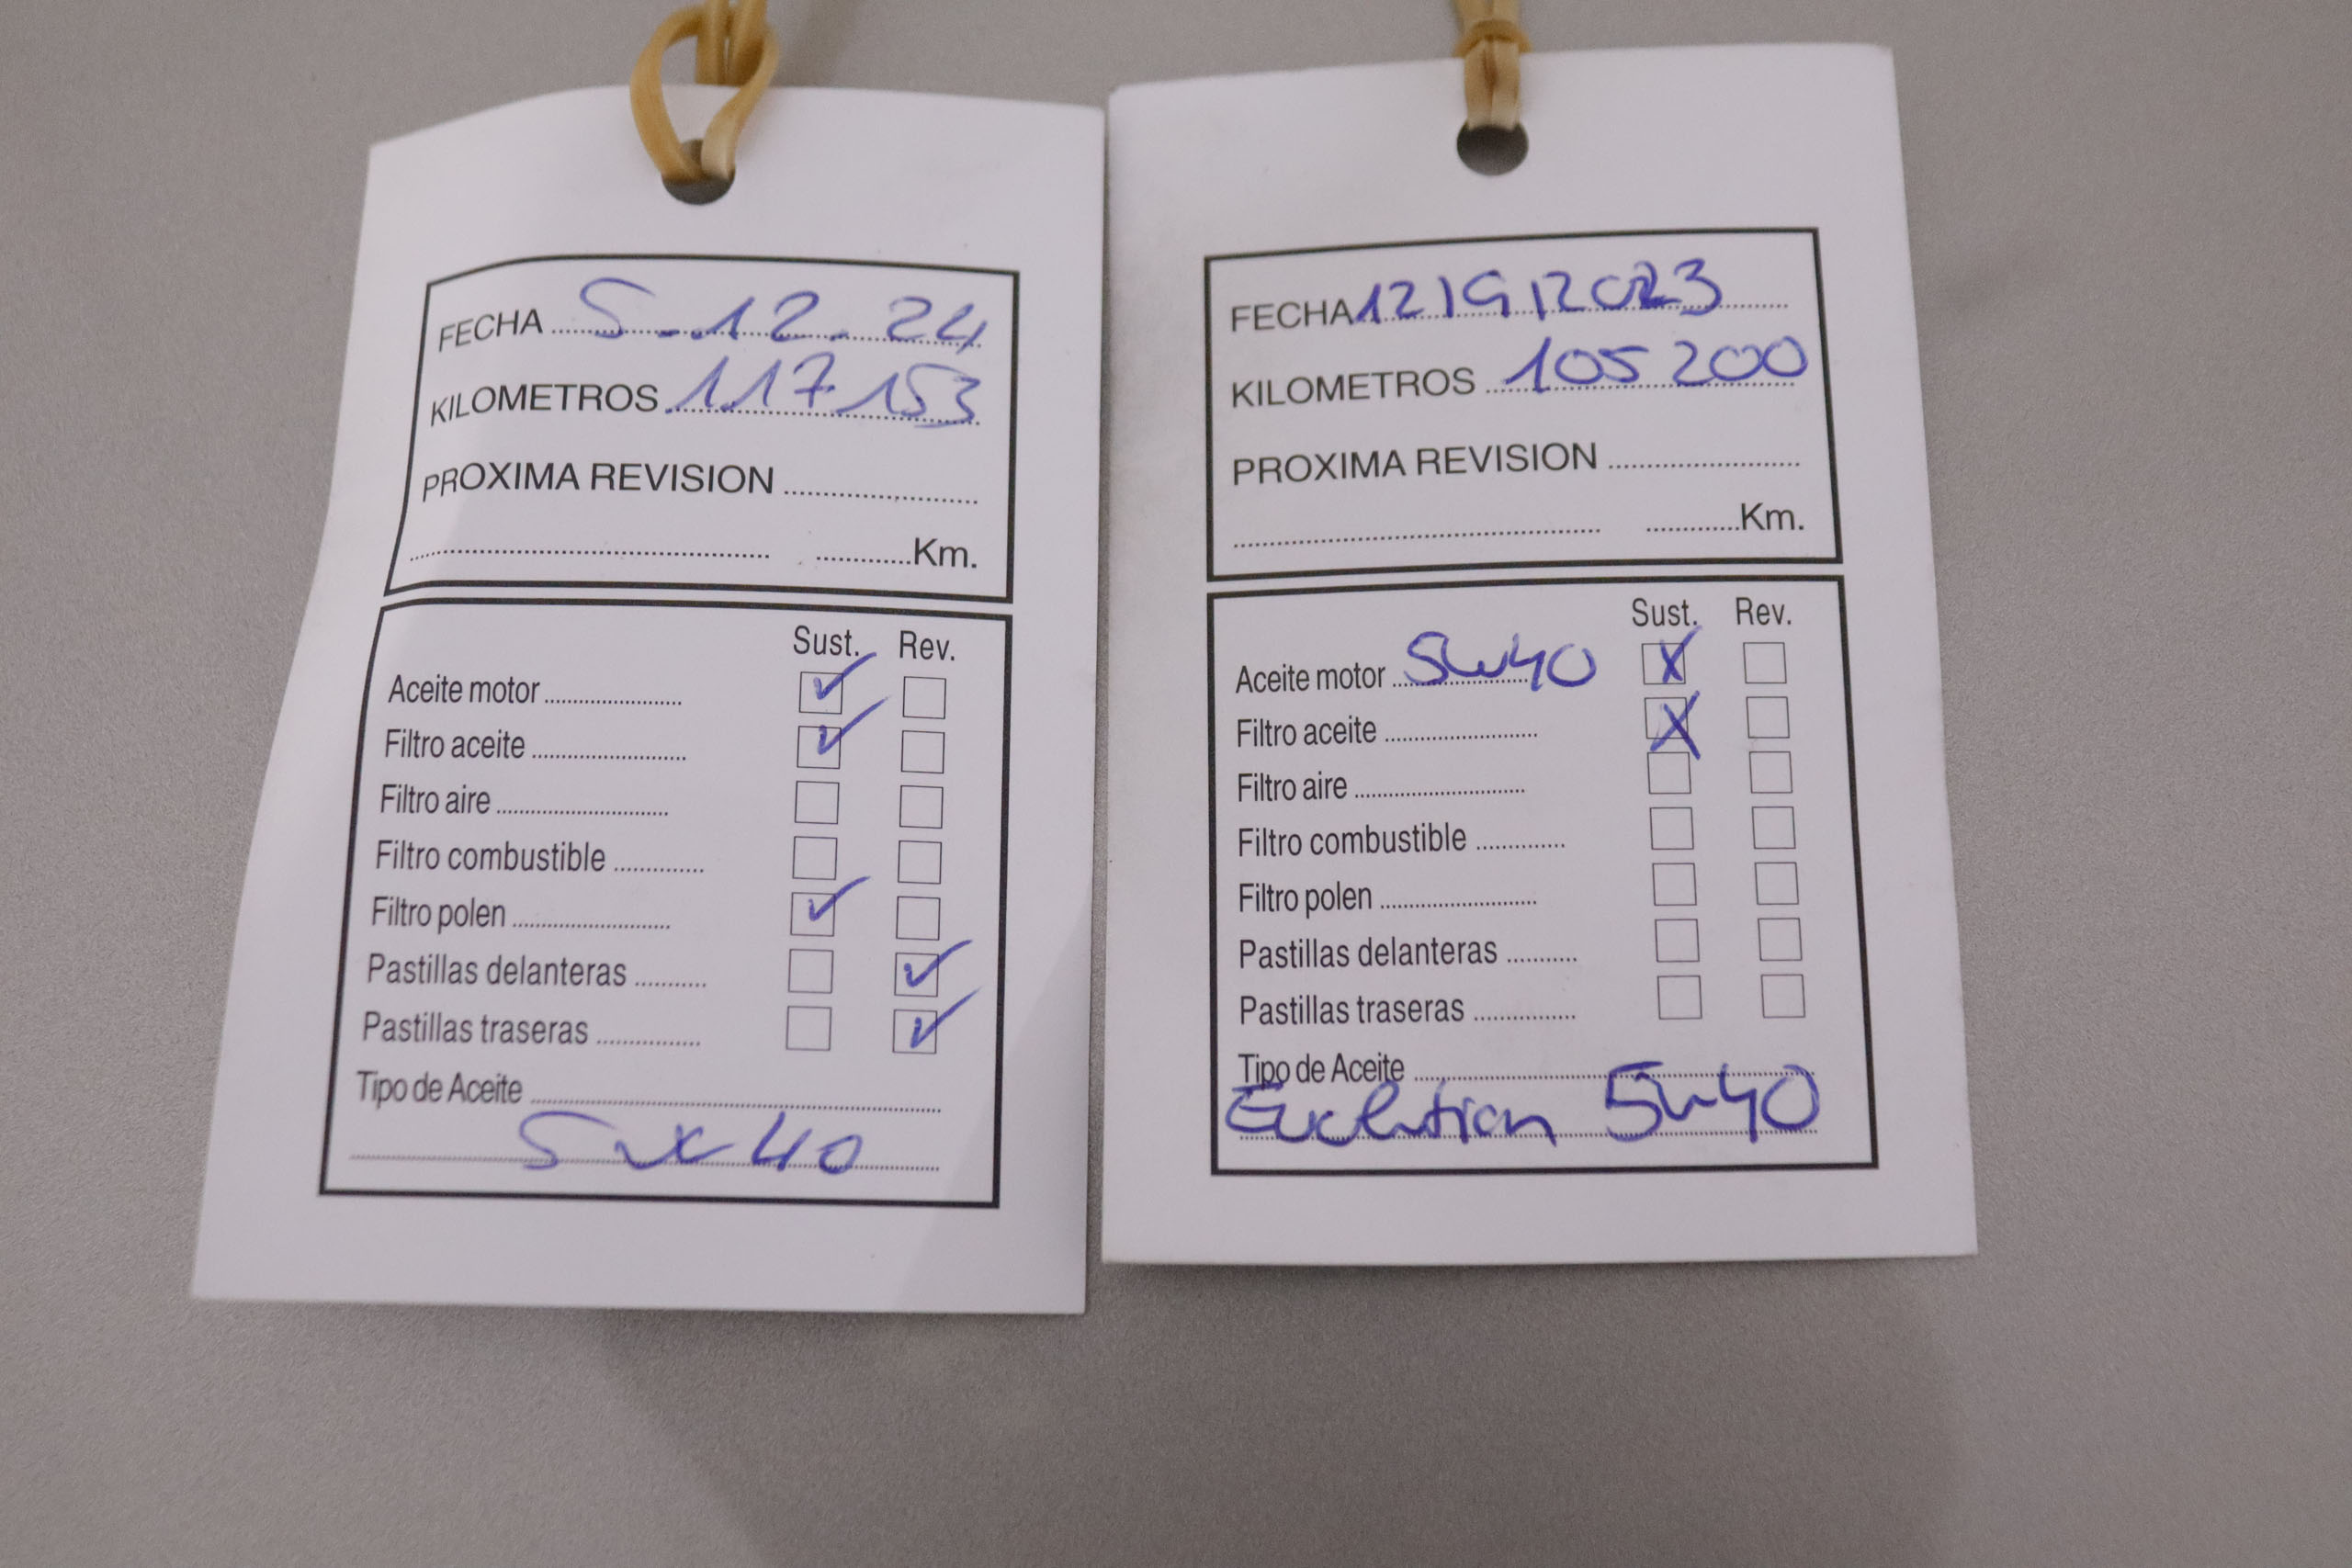 FECHA 5-12-24
KILOMETROS 117153
PROXIMA REVISION
Km.
Sust. Rev.
Aceite motor
Filtro aceite
Filtro aire
Filtro combustible
Filtro polen
Pastillas delanteras
Pastillas traseras
Tipo de Aceite
5W40
FECHA 12/9/2023
KILOMETROS 105200
PROXIMA REVISION
Km.
Sust. Rev.
Aceite motor 5W40
Filtro aceite
Filtro aire
Filtro combustible
Filtro polen
Pastillas delanteras
Pastillas traseras
Tipo de Aceite
Evolution 5W40